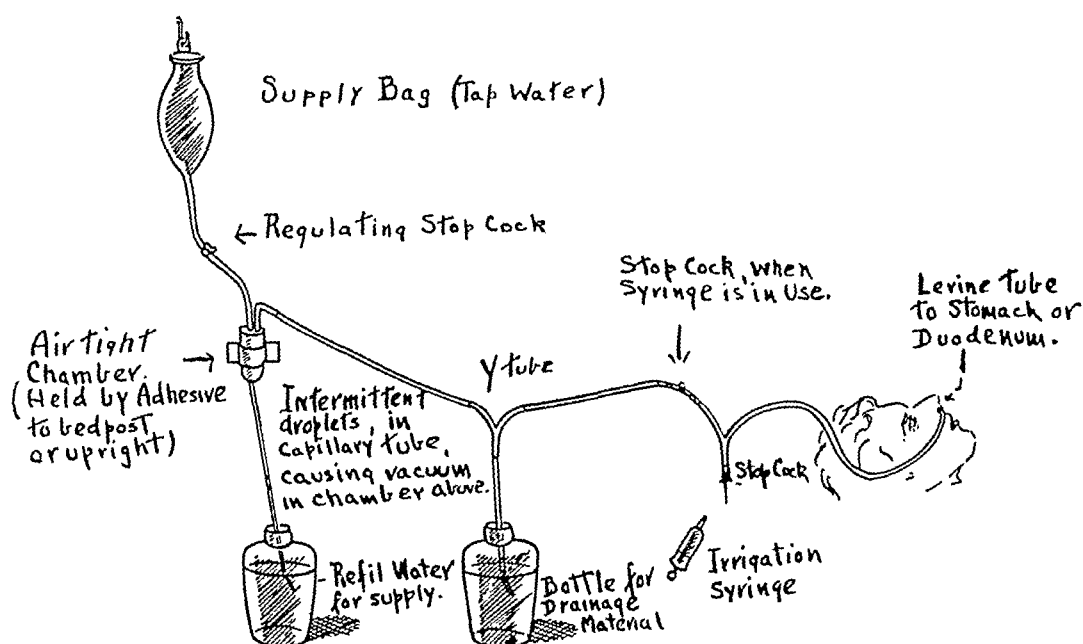 Supply Bag (Tap Water)
← Regulating Stop Cock
Stop Cock, when
Syringe is in Use.
Levine Tube
to Stomach or
Duodenum.
Air tight
Chamber.
(Held by Adhesive
to bedpost
or upright)
Y tube
Intermittent
droplets, in
Capillary tube,
causing vacuum
in chamber above.
Stop Cock
Refil Water
for supply.
Bottle for
Drainage
Material
Irrigation
Syringe